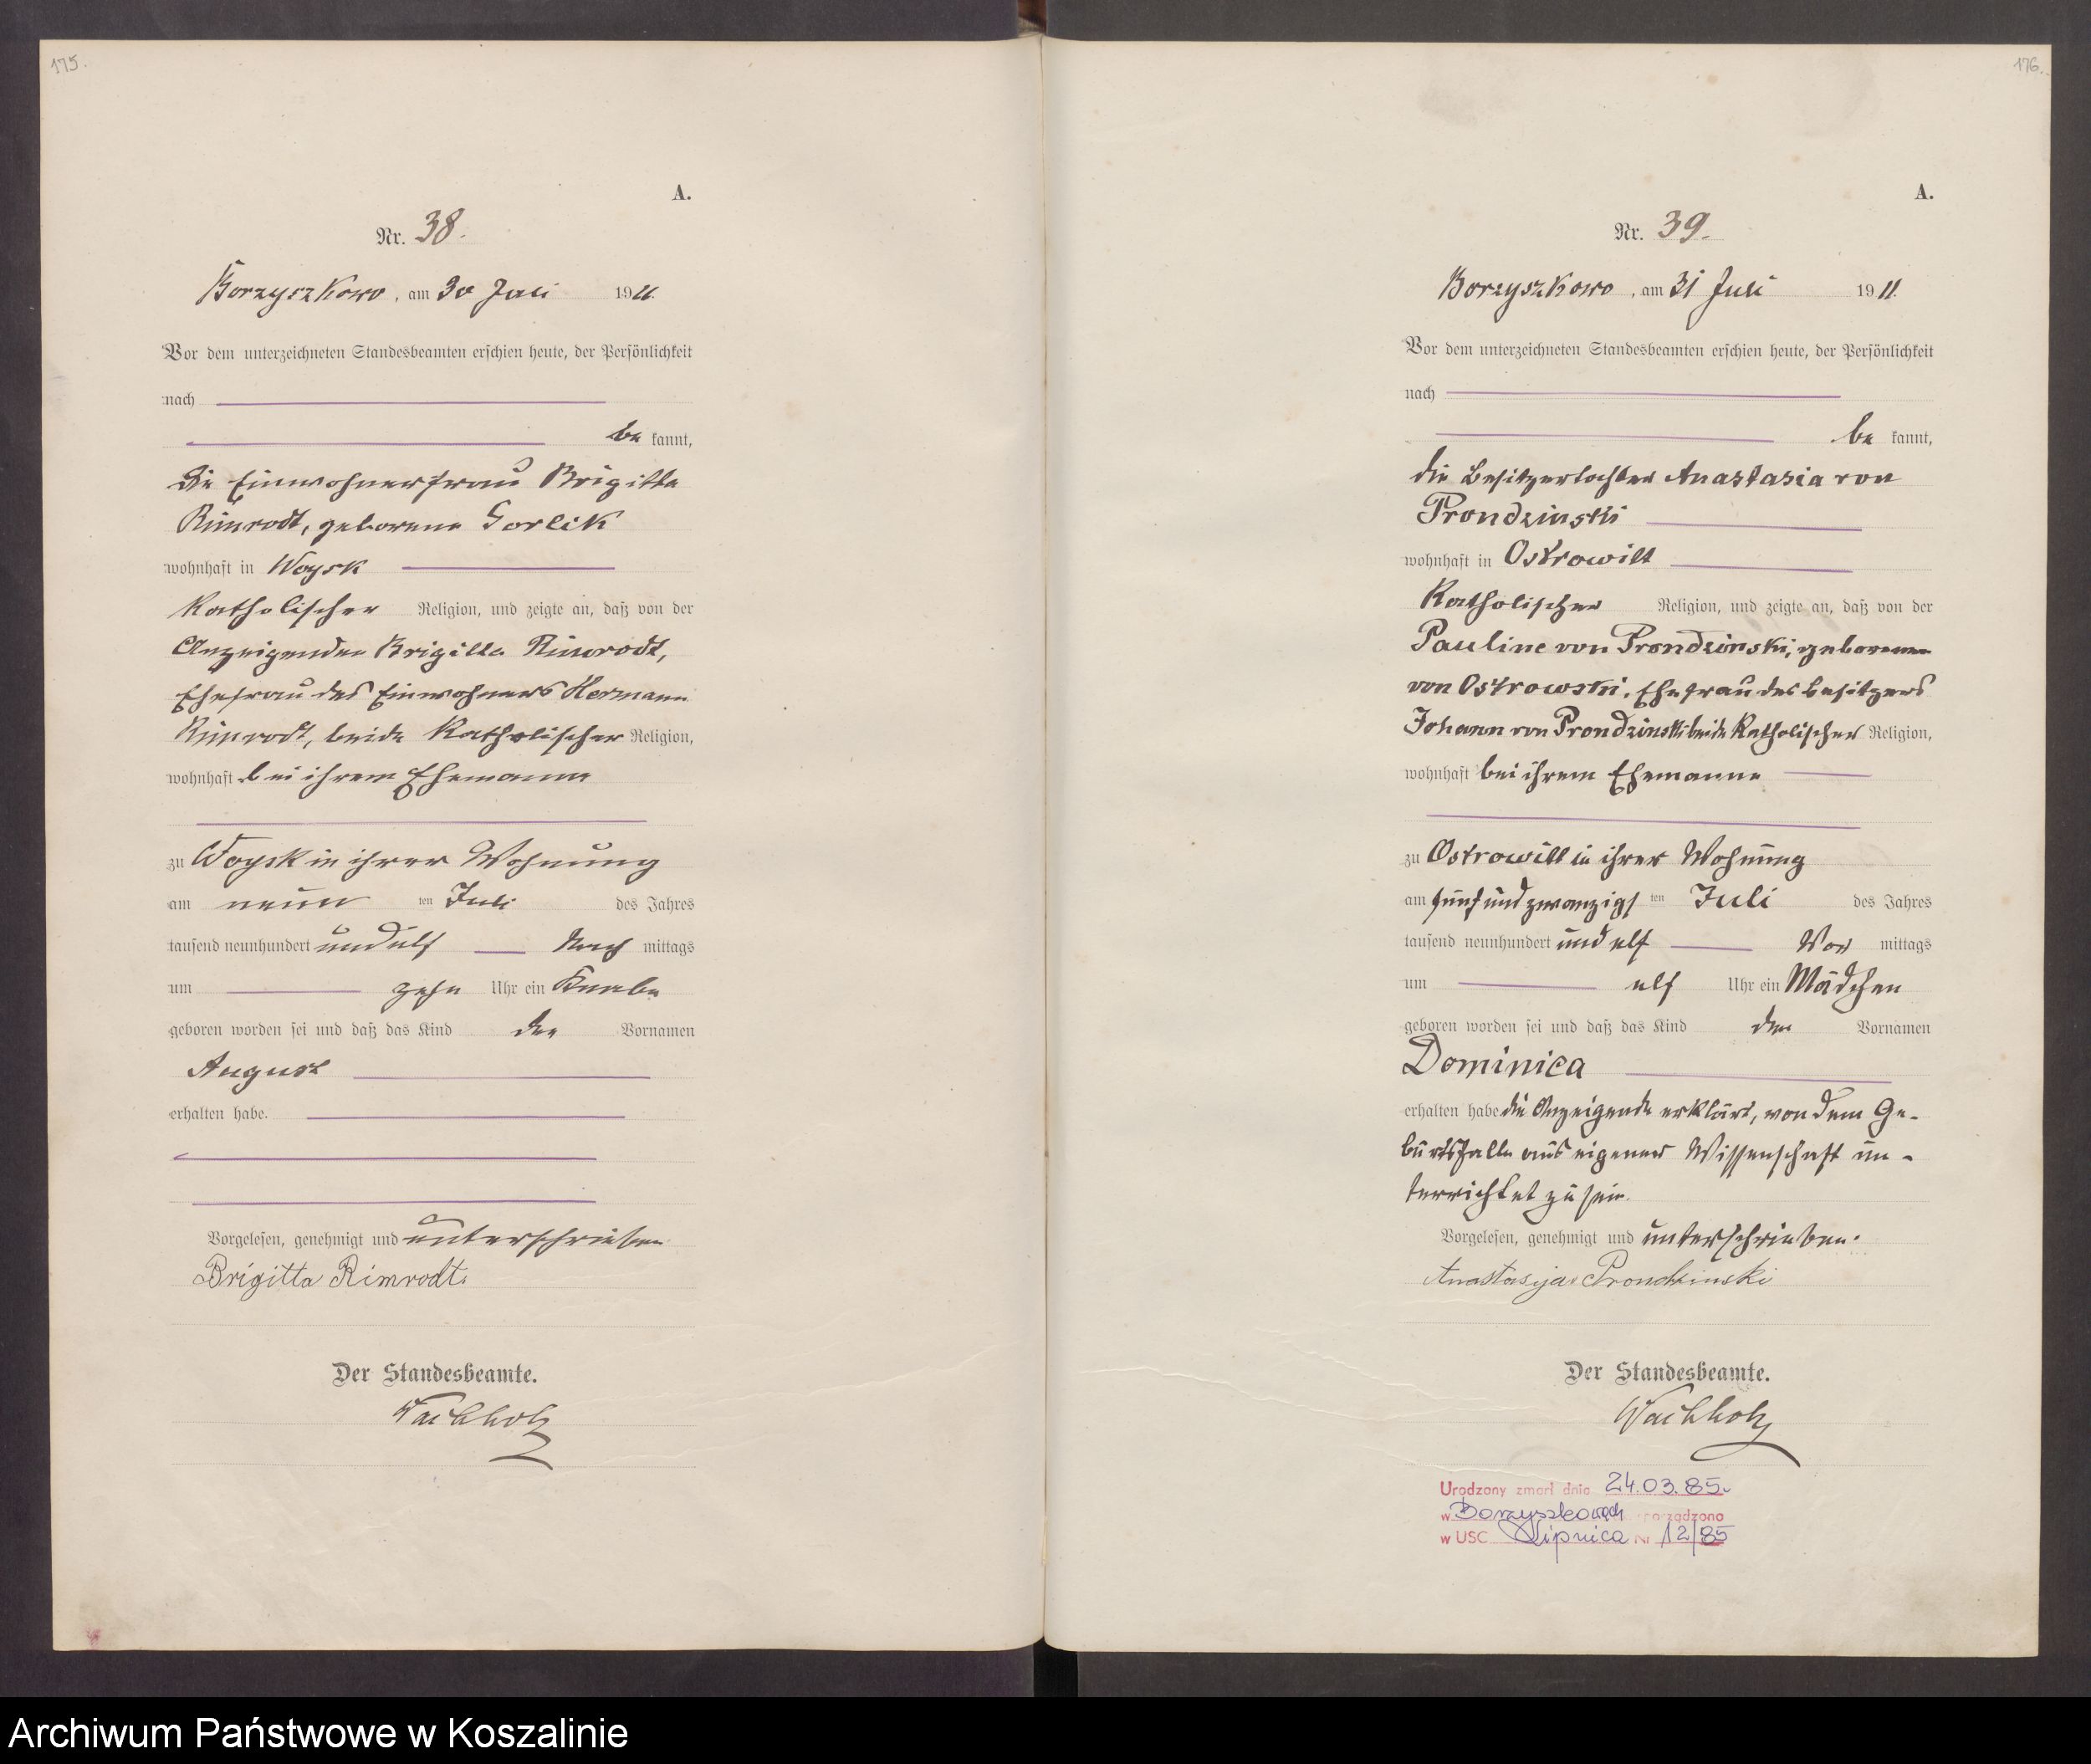 175.
A.
Nr. 38.
Borzyszkowo, am 30 Juli 1911.
Vor dem unterzeichneten Standesbeamten erschien heute, der Persönlichkeit
nach
be kannt,
die Einwohnerfrau Brigitta
Rimrodt, geborene Gorlik
wohnhaft in Woysk
katholischer Religion, und zeigte an, daß von der
Anzeigenden Brigitta Rimrodt,
Ehefrau des Einwohners Hermann
Rimrodt, beide katholischer Religion,
wohnhaft bei ihrem Ehemanne
zu Woysk in ihrer Wohnung
am neun ten Juli des Jahres
tausend neunhundert und elf Nach mittags
um zehn Uhr ein Knabe
geboren worden sei und daß das Kind den Vornamen
August
erhalten habe.
Vorgelesen, genehmigt und unterschrieben
Brigitta Rimrodt.
Der Standesbeamte.
Wachholz
176.
A.
Nr. 39.
Borzyszkowo, am 31 Juli 1911.
Vor dem unterzeichneten Standesbeamten erschien heute, der Persönlichkeit
nach
be kannt,
die Besitzertochter Anastasia von
Prondzinski
wohnhaft in Ostrowitt
katholischer Religion, und zeigte an, daß von der
Pauline von Prondzinski, geborenen
von Ostrowski, Ehefrau des Besitzers
Johann von Prondzinski beide katholischer Religion,
wohnhaft bei ihrem Ehemanne
zu Ostrowitt in ihrer Wohnung
am fünfundzwanzigs ten Juli des Jahres
tausend neunhundert und elf Vor mittags
um elf Uhr ein Mädchen
geboren worden sei und daß das Kind den Vornamen
Dominica
erhalten habe die Anzeigende erklärt, von dem Ge-
burtsfalle aus eigener Wissenschaft un-
terrichtet zu sein.
Vorgelesen, genehmigt und unterschrieben.
Anastasija Prondzinski
Der Standesbeamte.
Wachholz
Urodzony zmarł dnia 24.03.85.
w Borzyszkowach sporządzono
w USC Lipnica Nr 12/85
Archiwum Państwowe w Koszalinie